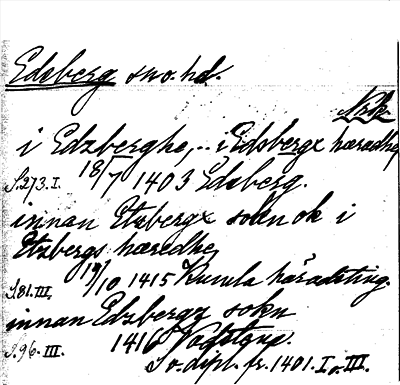 Edsberg sno. hd.
Nrk
i Edzberghe, .. i Edsbergx hæradhe
S. 273. I. 18/7 1403 Edsberg.
innan Etzbergx sokn ok i
Etzbergs hæredhe
S. 81. III. 19/10 1415 Kumla häradsting.
innan Edzbergx sokn
S. 96. III. 1416
S o. dipl. fr. 1401. I o. III.